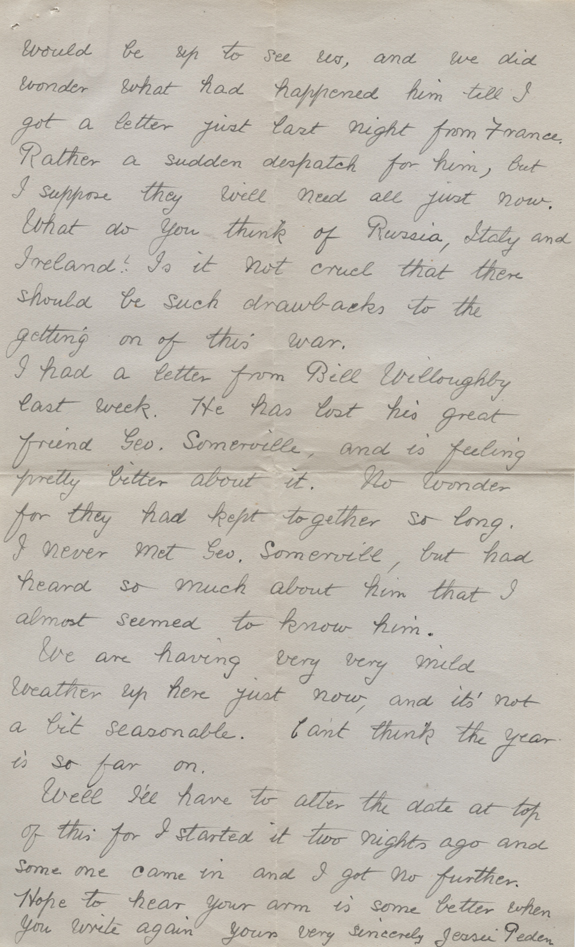 would be up to see us, and we did
wonder what had happened him till I
got a letter just last night from France.
Rather a sudden despatch for him, but
I suppose they will need all just now.
What do you think of Russia, Italy and
Ireland! Is it not cruel that there
should be such drawbacks to the
getting on of this war.
I had a letter from Bill Willoughby
last week. He has lost his great
friend Geo. Somerville, and is feeling
pretty bitter about it. No wonder
for they had kept together so long.
I never met Geo. Somervill, but had
heard so much about him that I
almost seemed to know him.
We are having very very mild
weather up here just now, and it's not
a bit seasonable. Cant think the year
is so far on.
Well I'll have to alter the date at top
of this for I started it two nights ago and
some one came in and I got no further.
Hope to hear your arm is some better when
you write again yours very sincerely Jessie Peden